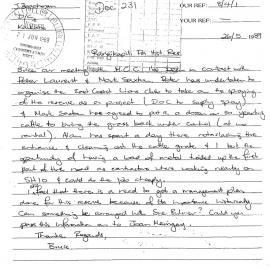 J Beacham
DOC 231
OUR REF: 8/4/1
D/C
YOUR REF:
Kaikohe
26/5 1989
JUN 1989
Rangikapiti Pa Hist Res.
Since our meeting with M.C.C. I've been in contact with
Peter Laurent & Mark Seaton. Peter has undertaken to
organise the East Coast Lions club to take on the spraying
of the reserve as a project (DOC to supply spray)
& Mark Seaton has agreed to put a dozen or so yearling
cattle to bring the grass back under control (at no
rental). Noam has spent a day there rotorslashing the
entrance & cleaning out the cattle grate & I took the
opportunity of having a load of metal tidied up the first
part of the road as contractors were working nearby on
SH10 & could do the job cheaply.
I feel that there is a need to get a management plan
done for this reserve because of its importance historically.
Can something be arranged with Sue Bulmer? Could you
pass this information on to Joan
Thanks Regards,
Bruce.